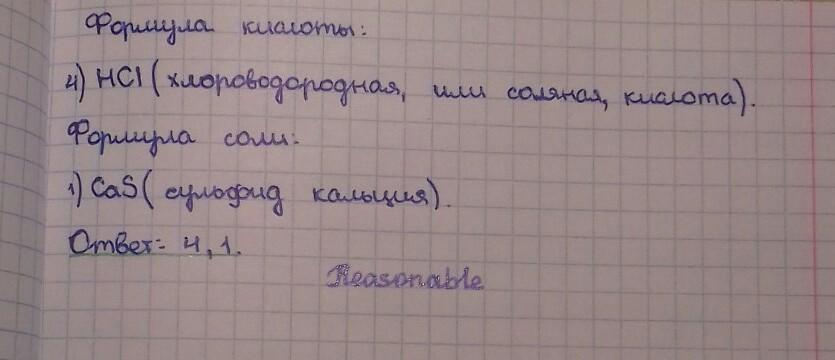 Формула кислоты:
4) HCl (хлороводородная, или соляная, кислота).
Формула соли:
1) CaS (сульфид кальция).
Ответ: 4, 1.
Reasonable